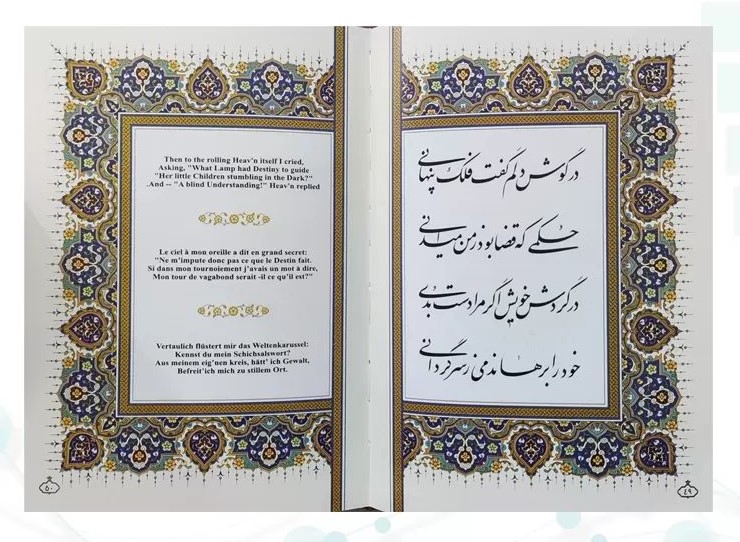 در گوش دلم گفت فلک پنهانی
حکمی که قضا بود ز من میدانی
در گردش خویش اگر مرا دست بدی
خود را برهاندمی ز سرگردانی
٤٩
Then to the rolling Heav'n itself I cried,
Asking, "What Lamp had Destiny to guide
"Her little Children stumbling in the Dark?"
.And -- "A blind Understanding!" Heav'n replied
Le ciel à mon oreille a dit en grand secret:
"Ne m'impute donc pas ce que le Destin fait.
Si dans mon tournoiement j'avais un mot à dire,
Mon tour de vagabond serait -il ce qu'il est?"
Vertaulich flüstert mir das Weltenkarussel:
Kennst du mein Schichsalswort?
Aus meinem eig'nen kreis, hätt' ich Gewalt,
Befreit'ich mich zu stillem Ort.
٥٠